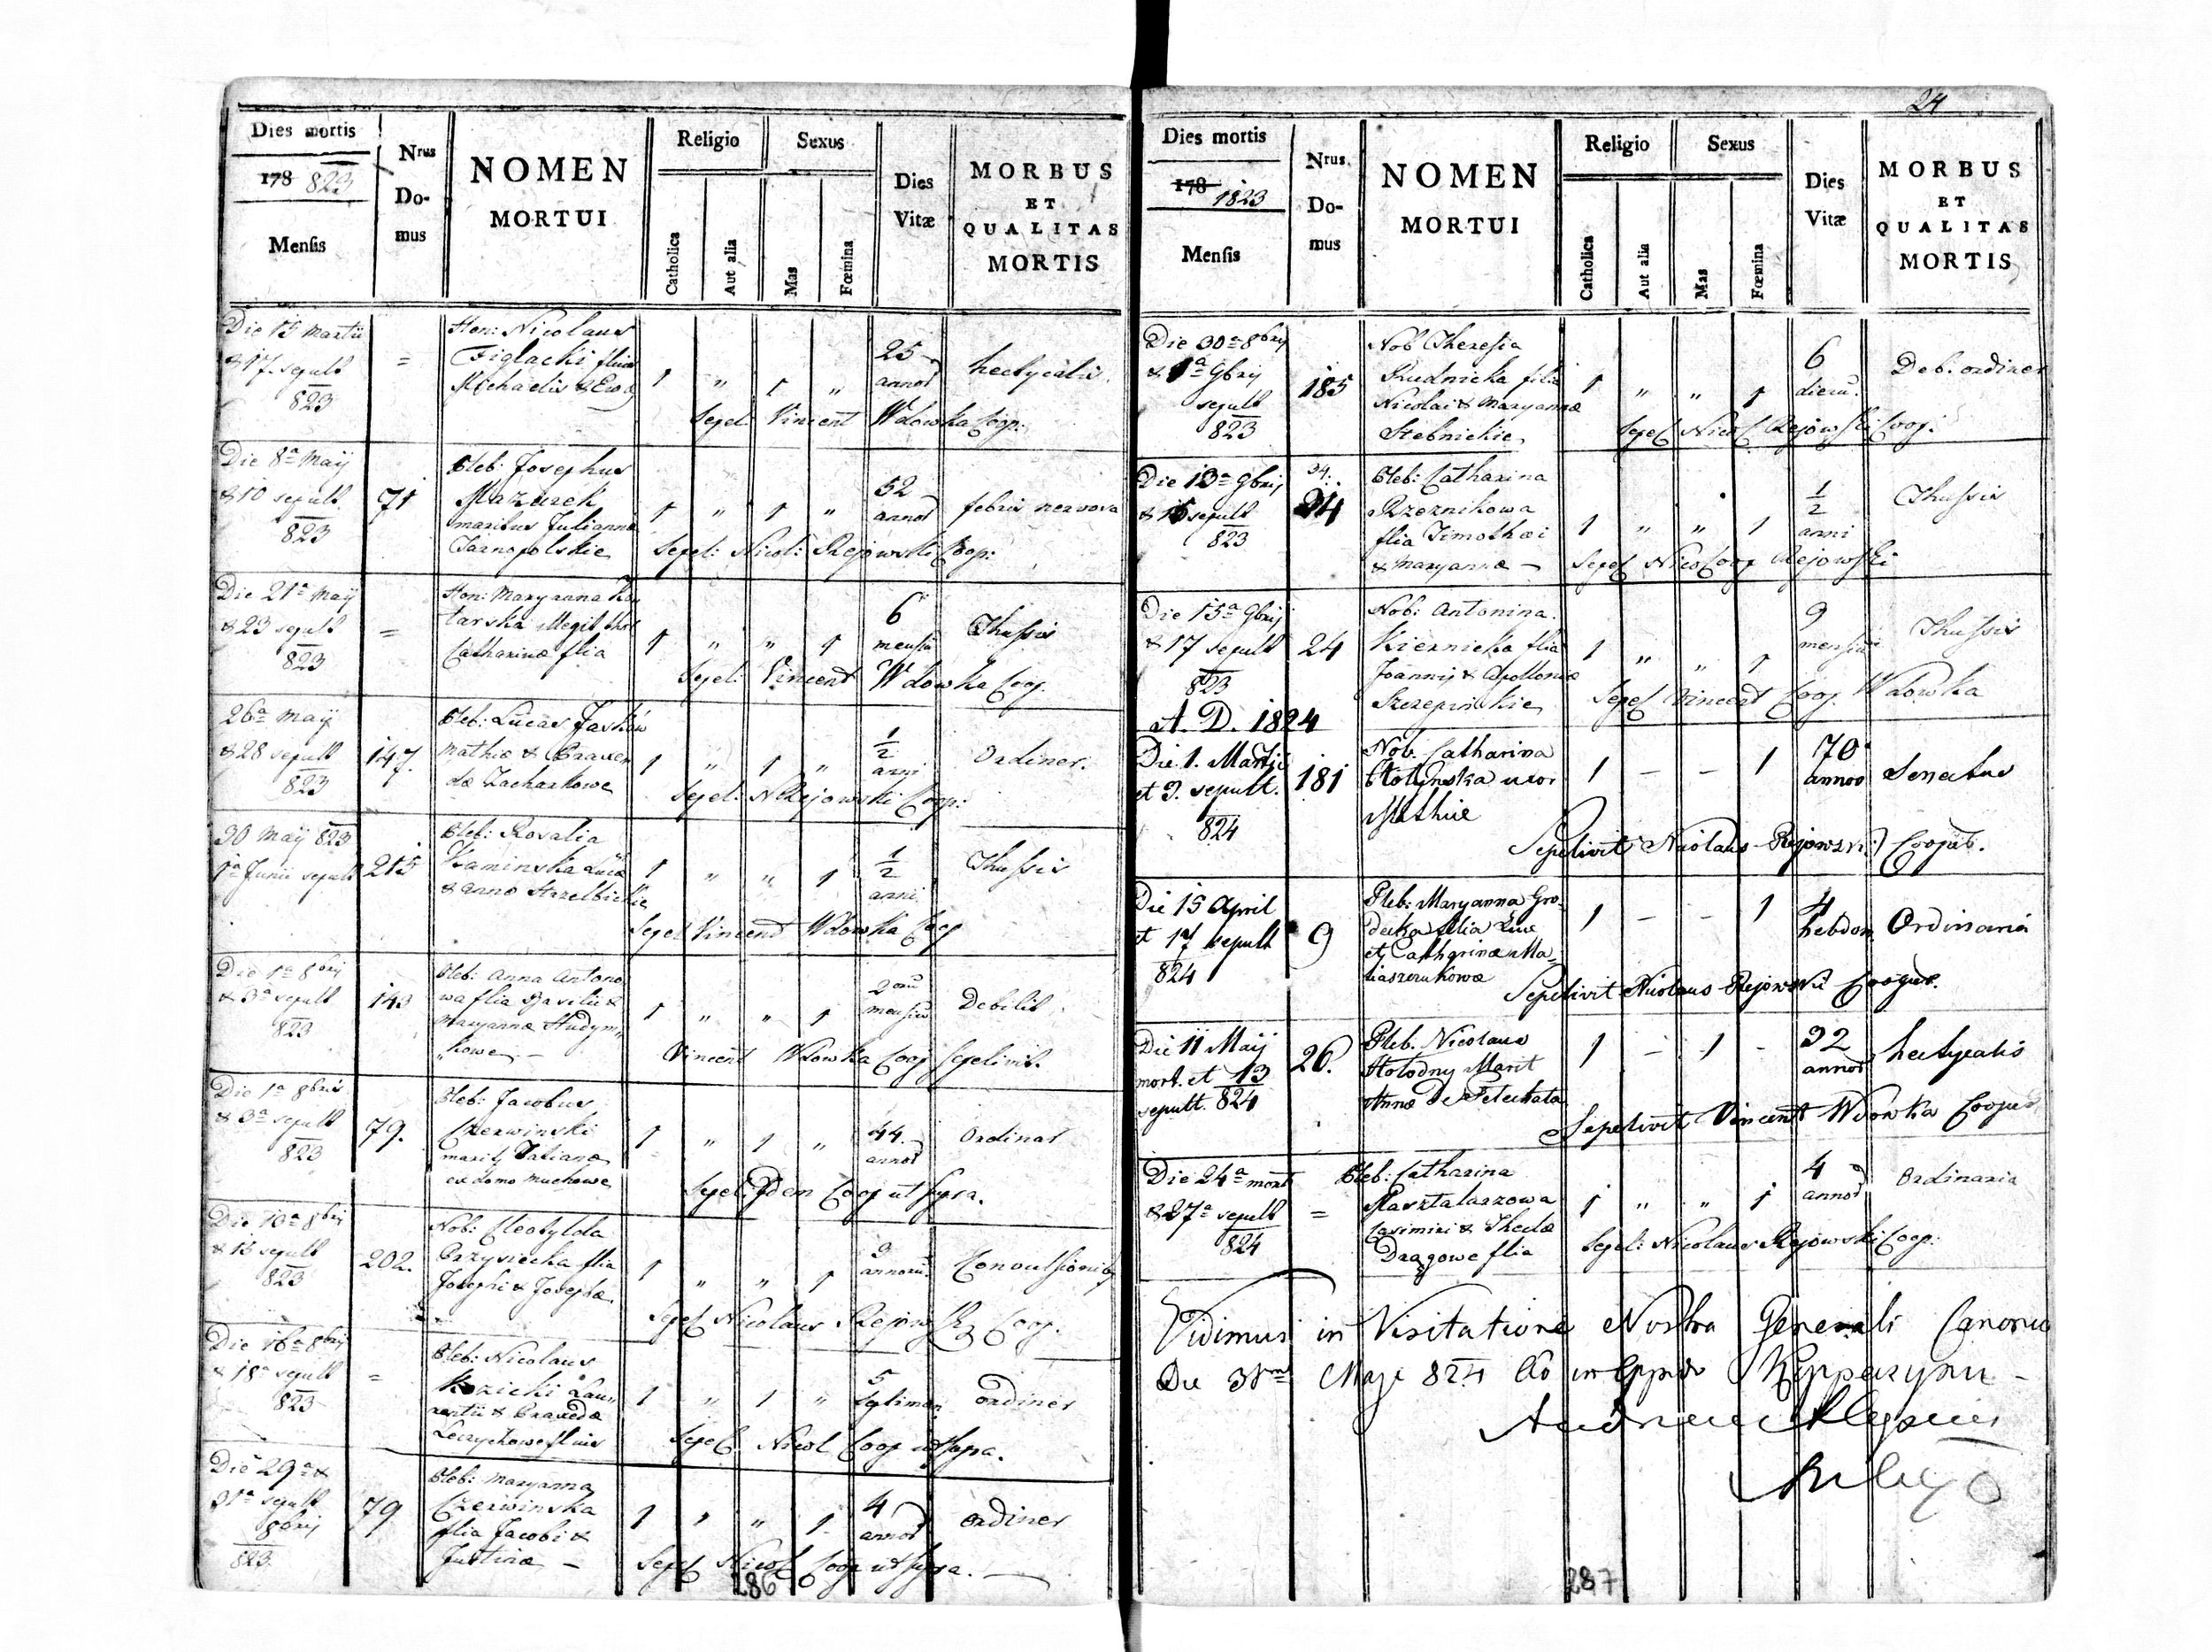 Dies mortis
178 823
Mensis
Nrus
Do-
mus
NOMEN
MORTUI
Religio
Catholica
Aut alia
Sexus
Mas
Fœmina
Dies
Vitæ
MORBUS
ET
QUALITAS
MORTIS
Die 15 Martii
& 17 sepult
823
=
Hon: Nicolaus
Figlacki
Michaelis & Eva
1 " 1 "
25
annor
hectycalis.
Sepel: Vincent Wdowka Coop:
Die 8a Maij
& 10 sepult
823
71
Pleb: Josephus
Mazurek
maritus Julianna
Tarnopolskie
1 " 1 "
52
annor
febris nervosa
Sepel: Nicol: Rejowski Coop:
Die 21a Maij
& 23 sepult
823
=
Hon: Maryanna
tarska
Catharinæ flia
1 " " 1
6
mensiu
Thussis
Sepel: Vincent Wdowka Coop.
26a Maij
& 28 sepult
823
147.
Pleb: Lucas
Mathiæ & Praxen
dæ Zacharkowe
1 " 1 "
1/2
anni
Ordiner.
Sepel: N Rejowski Coop:
30 Maij 823
1a Junii sepult
215
Pleb: Rosalia
Kaminska Lucæ
& Annæ Strzelbickie
1 " " 1
1/2
anni
Thussis
Sepel Vincent Wdowka Coop
Die 1a 8bris
& 3a sepult
823
143
Pleb: Anna Antono
wa flia Wasilii &
Maryannæ Hudym
"kowe –
1 " " 1
2
mensiu
Debilit
Vincent Wdowka Coop Sepelivit.
Die 1a 8bris
& 3a sepult
823
79.
Pleb: Jacobus
Czerwinski
marit Tatiana
ex domo Muchowe
1 " 1 "
44.
annor
Ordinar
Sepel: Idem Coop ut supra.
Die 10a 8bris
& 13 sepult
823
202.
Nob: Cleotylda
Przysiecka flia
Josephi & Josepha
1 " " 1
annoru
Convulsionibus
Sepel Nicolaus Rejowski Coop.
Die 16a 8bris
& 18a sepult
823
=
Pleb: Nicolaus
Kozicki Lau"
rentii & Praxedæ
1 " 1 "
5
septiman
ordiner
Sepel Nicol Coop ut supra.
Die 29a &
31a sepult
8bris
823
79
Pleb: Maryanna
Czerwinska
flia Jacobi &
Justinæ –
1 " " 1
4
annor
ordiner
Sepel Nicol Coop ut supra.
286
24
Dies mortis
178 1823
Mensis
Nrus.
Do-
mus
NOMEN
MORTUI
Religio
Catholica
Aut alia
Sexus
Mas
Fœmina
Dies
Vitæ
MORBUS
ET
QUALITAS
MORTIS
Die 30a 8bris
& 1a 9bris
sepult
823
185
Nob Theresia
Rudnicka filia
Nicolai & Maryannæ
Stebnickie
1 " " 1
6
dieru.
Deb. ordiner
Sepel Nicol Rejowski Coop.
Die 13a 9bris
& 15 sepult
823
24
Pleb: Catharina
Rzeznikowa
flia Timothæi
& Maryannæ –
1 " " 1
1/2
anni
Thussis
Sepel Nico Coop Rejowski
Die 15a 9bris
& 17 sepult
823
24
Nob: Antonina
Kiernicka flia
Joannis & Apolloniæ
Szczepinskie
1 " " 1
9
mensiu
Thussis
Sepel Vincent Coop. Wdowka
A. D. 1824
Die 1. Martii
et 3. sepult.
824
181
Nob. Catharina
Hołynska uxor
Mathiæ
1 – – 1
70
annor
Senectus
Sepelivit Nicolaus Rejowski Cooper.
Die 15 April
et 17 sepult
824
9
Pleb: Maryanna Gro-
decka filia Lucæ
et Catharinæ Ma-
tiaszczukowæ
1 – – 1
4
hebdom
Ordinaria
Sepelivit Nicolaus Rejowski Cooper.
Die 11 Maij
mort. et 13
sepult. 824
26.
Pleb. Nicolaus
Hołodny Marit
Annæ de Pelechata
1 – 1 –
32
annor
hectycalis
Sepelivit Vincent Wdowka Cooper
Die 24a mort
& 27a sepult
824
=
Pleb: Catharina
Marztalarzowa
Casimiri & Theclæ
Dragowe flia
1 " " 1
4
annor
Ordinaria
Sepel: Nicolaus Rejowski Coop:
Vidimus in Visitatione Nostra Generali Canonica
Die 31ma Maji 824
287